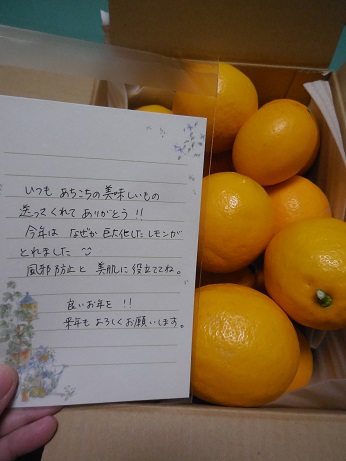 いつも あちこちの美味しいもの
送ってくれて ありがとう!!
今年は なぜか 巨大化した レモンが
とれました
風邪防止と 美肌に 役立ててね。
良いお年を !!
来年も よろしくお願いします。